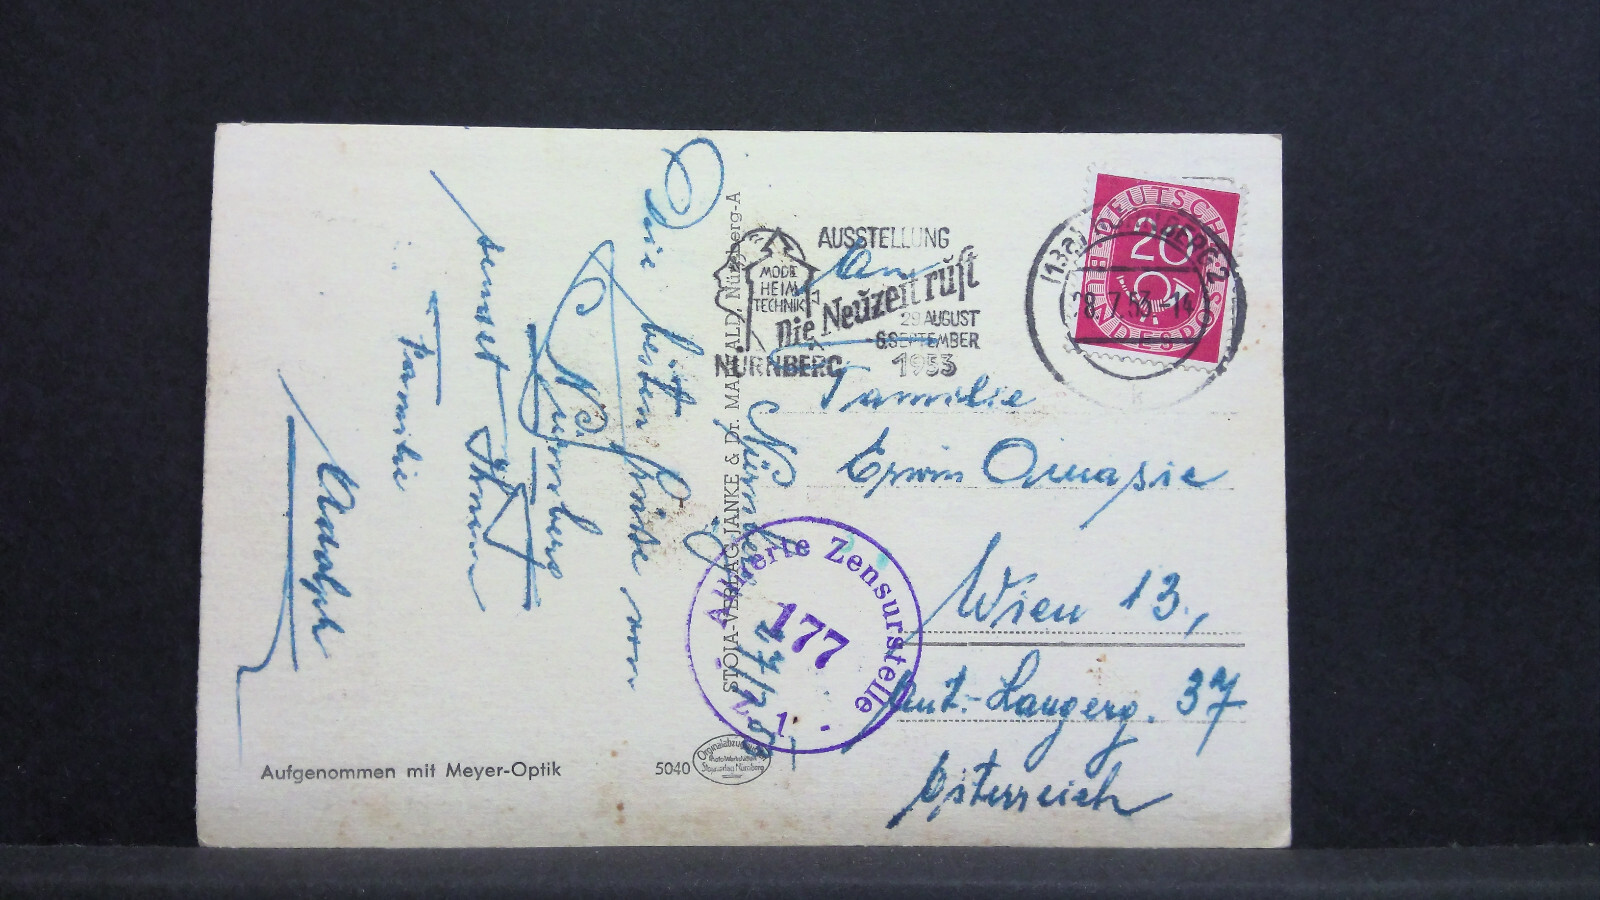 Die besten Grüße aus
Nürnberg
sendet Ihnen
Familie
Adolph
Nürnberg
27/7.53
STOJA-VERLAG JANKE & Dr. MAIWALD, Nürnberg-A
AUSSTELLUNG
MODE
HEIM
TECHNIK
Die Neuzeit ruft
29 AUGUST
-6.SEPTEMBER
NÜRNBERG 1953
DEUTSCHE
BUNDESPOST
20
(13a) NÜRNBERG 2
28.7.53.-14
k
An
Familie
Erwin
Wien 13.,
Ant.-Langerg. 37
Österreich
Alliierte Zensurstelle
177
1
Aufgenommen mit Meyer-Optik
5040